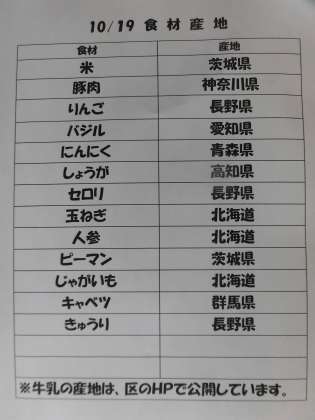 10/19 食材産地
食材 産地
米 茨城県
豚肉 神奈川県
りんご 長野県
バジル 愛知県
にんにく 青森県
しょうが 高知県
セロリ 長野県
玉ねぎ 北海道
人参 北海道
ピーマン 茨城県
じゃがいも 北海道
キャベツ 群馬県
きゅうり 長野県
※牛乳の産地は、区のHPで公開しています。